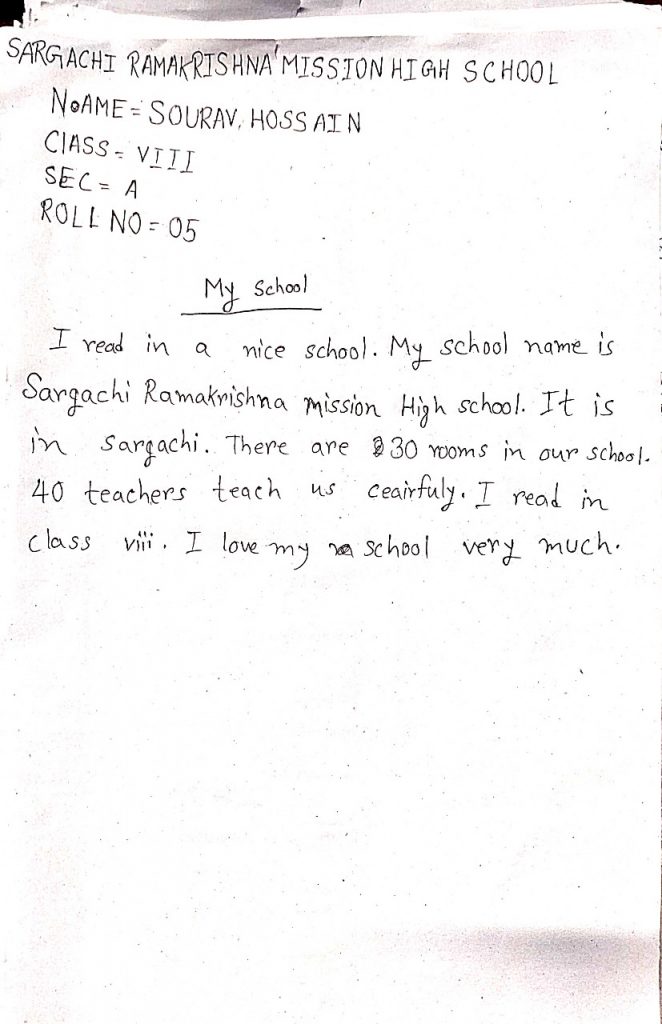 SARGACHI RAMAKRISHNA MISSION HIGH SCHOOL
NAME = SOURAV. HOSSAIN
ClASS = VIII
SEC = A
ROLL NO = 05
My School
I read in a nice school. My school name is
Sargachi Ramakrishna mission High school. It is
in sargachi. There are 30 rooms in our school.
40 teachers teach us ceairfuly. I read in
class viii. I love my school very much.